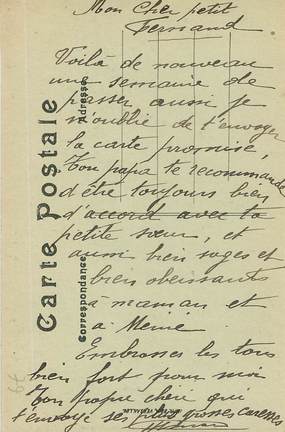 Mon Cher petit
Fernand
Voilà de nouveau
une semaine de
passer aussi je
n'oublie de t'envoyer
la carte promise,
Ton papa te recommande
d'être toujours bien
d'accord avec ta
petite sœur, et
aussi bien sages et
bien obeissants
à maman et
à Mémé
Embrasses les tous
bien fort pour moi
Ton papa chéri qui
t'envoye ses plus grosses caresses
Carte Postale
Correspondance
Adresse